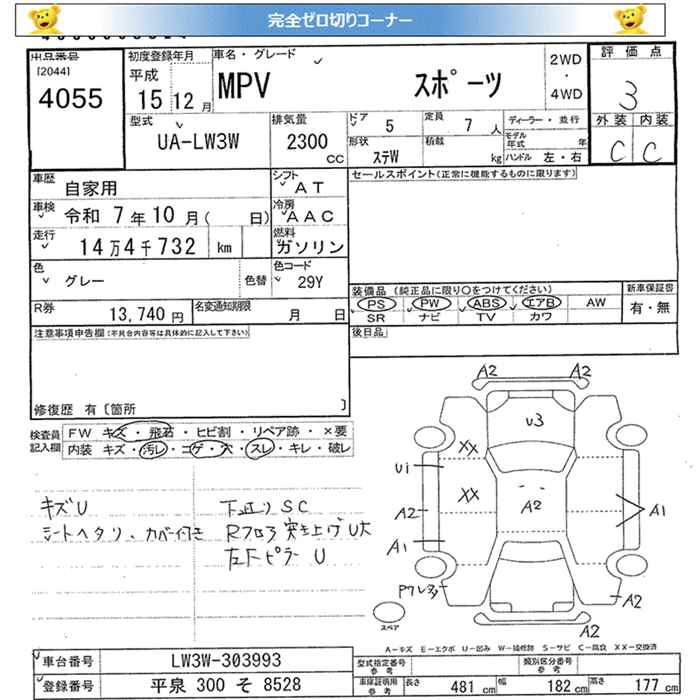 完全ゼロ切りコーナー
出品番号
[2044]
4055
初度登録年月
平成
15 12 月
車名・グレード
MPV スポーツ
2WD
・
4WD
評価点
3
外装 内装
C C
型式
UA-LW3W
排気量
2300
cc
ドア 5
定員 7 人
ディーラー・並行
形状 ステW
積載 kg
モデル年式 年
ハンドル 左・右
車歴 自家用
シフト AT
セールスポイント(正常に機能するものに限ります)
車検 令和 7 年 10 月( 日)
冷房 AAC
走行 14万4千732 km
燃料 ガソリン
色 グレー 色替
色コード 29Y
装備品 (純正品に限り○をつけてください)
新車保証書
PS PW ABS エアB AW
SR ナビ TV カワ
有・無
R券 13,740 円
名変通知期限 月 日
後日品
注意事項申告欄(不具合内容等は具体的に記入して下さい)
修復歴 有〔箇所 〕
検査員記入欄
FW キズ・飛石・ヒビ割・リペア跡・×要
内装 キズ・汚レ・コゲ・穴・スレ・キレ・破レ
キズU
シートヘタリ、カバー付き
下廻りSC
Rフロア突き上げU大
左下ピラーU
A2 A2
U3
XX
U1
XX
A2
A2
A1
A1
A2
A2
スペア
A-キズ E-エクボ U-凹み W-補修跡 S-サビ C-腐食 XX-交換済
車台番号 LW3W-303993
型式指定番号 参考
類別区分番号 参考
登録番号 平泉 300 そ 8528
車庫証明用 参考
長さ 481 cm
幅 182 cm
高さ 177 cm